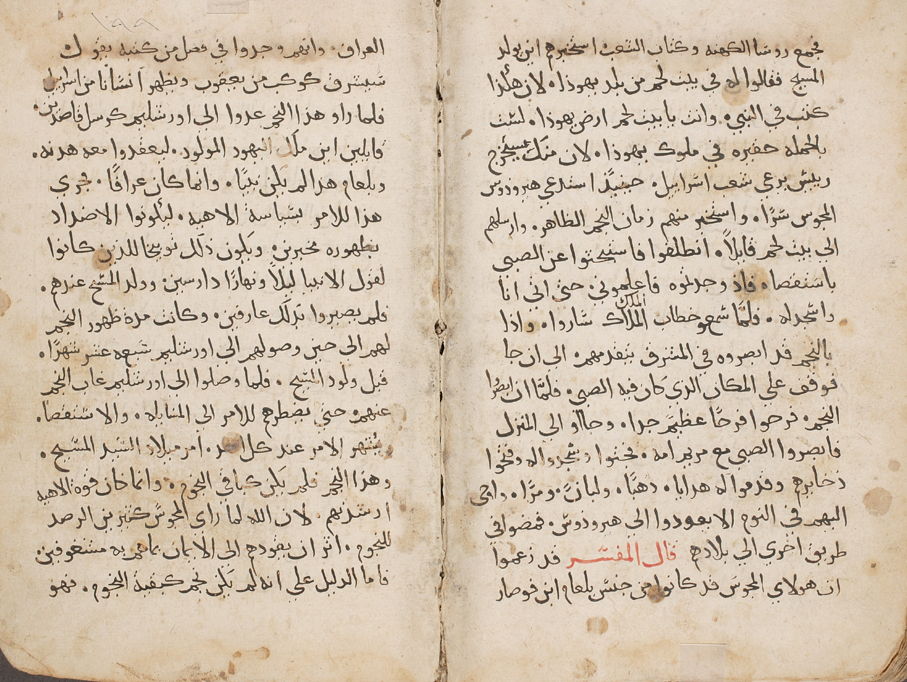 فجمع روسا الكهنه وكتاب الشعب استخبرهم اين يولد
المسيح فقالوا له في بيت لحم من بلد يهوذا. لان هكذا
كتب في النبي. وانت يا بيت لحم ارض يهوذا. لست
بالجمله حقيره في ملوك يهوذا. لان منك سيخرج
رييس يرعى شعب اسراييل. حينيذٍ استدعى هيرودوس
المجوس سرًا. واستخبر منهم زمان النجم الظاهر. وارسلهم
الى بيت لحم قايلاً. انطلقوا فاستبحتوا عن الصبي
باستقصا. فاذ وجدتوه فاعلموني. حتى اني انا
واسجد له. فلما سمعو خطاب الملك ساروا. واذا
بالنجم قد ابصروه في المشرق يتقدمهم. الى ان جا
فوقف على المكان الذي كان فيه الصبي. فلما ان ابصروا
النجم. فرحوا فرحًا عظيم جدا. وجااو الى المنزل
فابصروا الصبي مع مريم امه. فجثوا وسجدوا له وفتحوا
ذخايرهم وقدموا له هدايا. ذهبًا. ولبانًا. ومرًا. واوحى
اليهم في النوم الا يعودوا الى هيرودوس. فمضوا في
طريق اخرى الى بلادهم قال المفسر قد زعموا
ان هولاي المجوس قد كانوا من جنس بلعام ابن فوصار
العراف. وانهم وجدوا في فصل من كتبه يقول
سيشرق كوكب من يعقوب ويظهر انسانا من اسراييل
فلما راو هذا النجم عدوا الى اورشليم كرسل قاصدين.
قايلين اين ملك اليهود المولود. ليعقدوا معه هدنه.
وبلعام هذا لم يكن نبيًا. وانما كان عرافًا. جرى
هذا الامر بسياسة الاهيه. ليكونوا الاضداد
بظهوره مخبرين. ويكون ذلك توبيخا للذين كانوا
لقول الانبيا ليلاً ونهارًا دارسين. وولد المسيح عندهم.
فلم يصيروا بذلك عارفين. وكانت مدة ظهور النجم
لهم الى حين وصولهم الى اورشليم سبعه عشر شهرًا.
قبل ولود المسيح. فلما وصلوا الى اورشليم غاب النجم
عنهم. حتى يضطرهم للامر الى المسايله. والاستقصا.
يشهر الامر عند كل احد. امر ميلاد السيد المسيح.
وهذا النجم فلم يكن كباقي النجوم. وانما كان قوة الاهيه
ارشدتهم. لان الله لما راى المجوس كثيرين الرصد
للنجوم. اثر ان يقودهم الى الايمان بما هم به مشغوفين.
فاما الدليل على انه لم يكن نجم كبقية النجوم. فهو